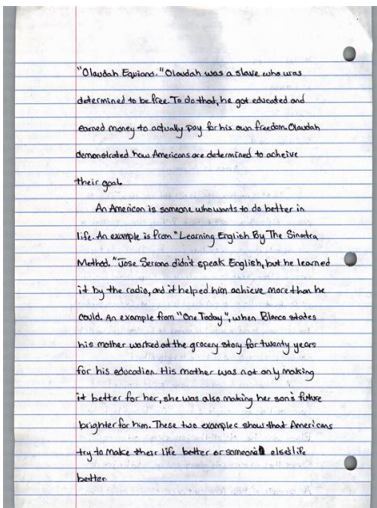 "Olaudah Equiano." Olaudah was a slave who was
determined to be free. To do that, he got educated and
earned money to actually pay for his own freedom. Olaudah
demonstrated how Americans are determined to acheive
their goal.
An American is someone who wants to do better in
life. An example is from "Learning English By The Sinatra
Method." Jose Serano didn't speak English, but he learned
it by the radio, and it helped him achieve more than he
could. An example from "One Today", when Blanco states
his mother worked at the grocery story for twenty years
for his educadion. His mother was not only making
it better for her, she was also making her son's future
brighter for him. These two examples show that Americans
try to make their life better or someone else's life
better.